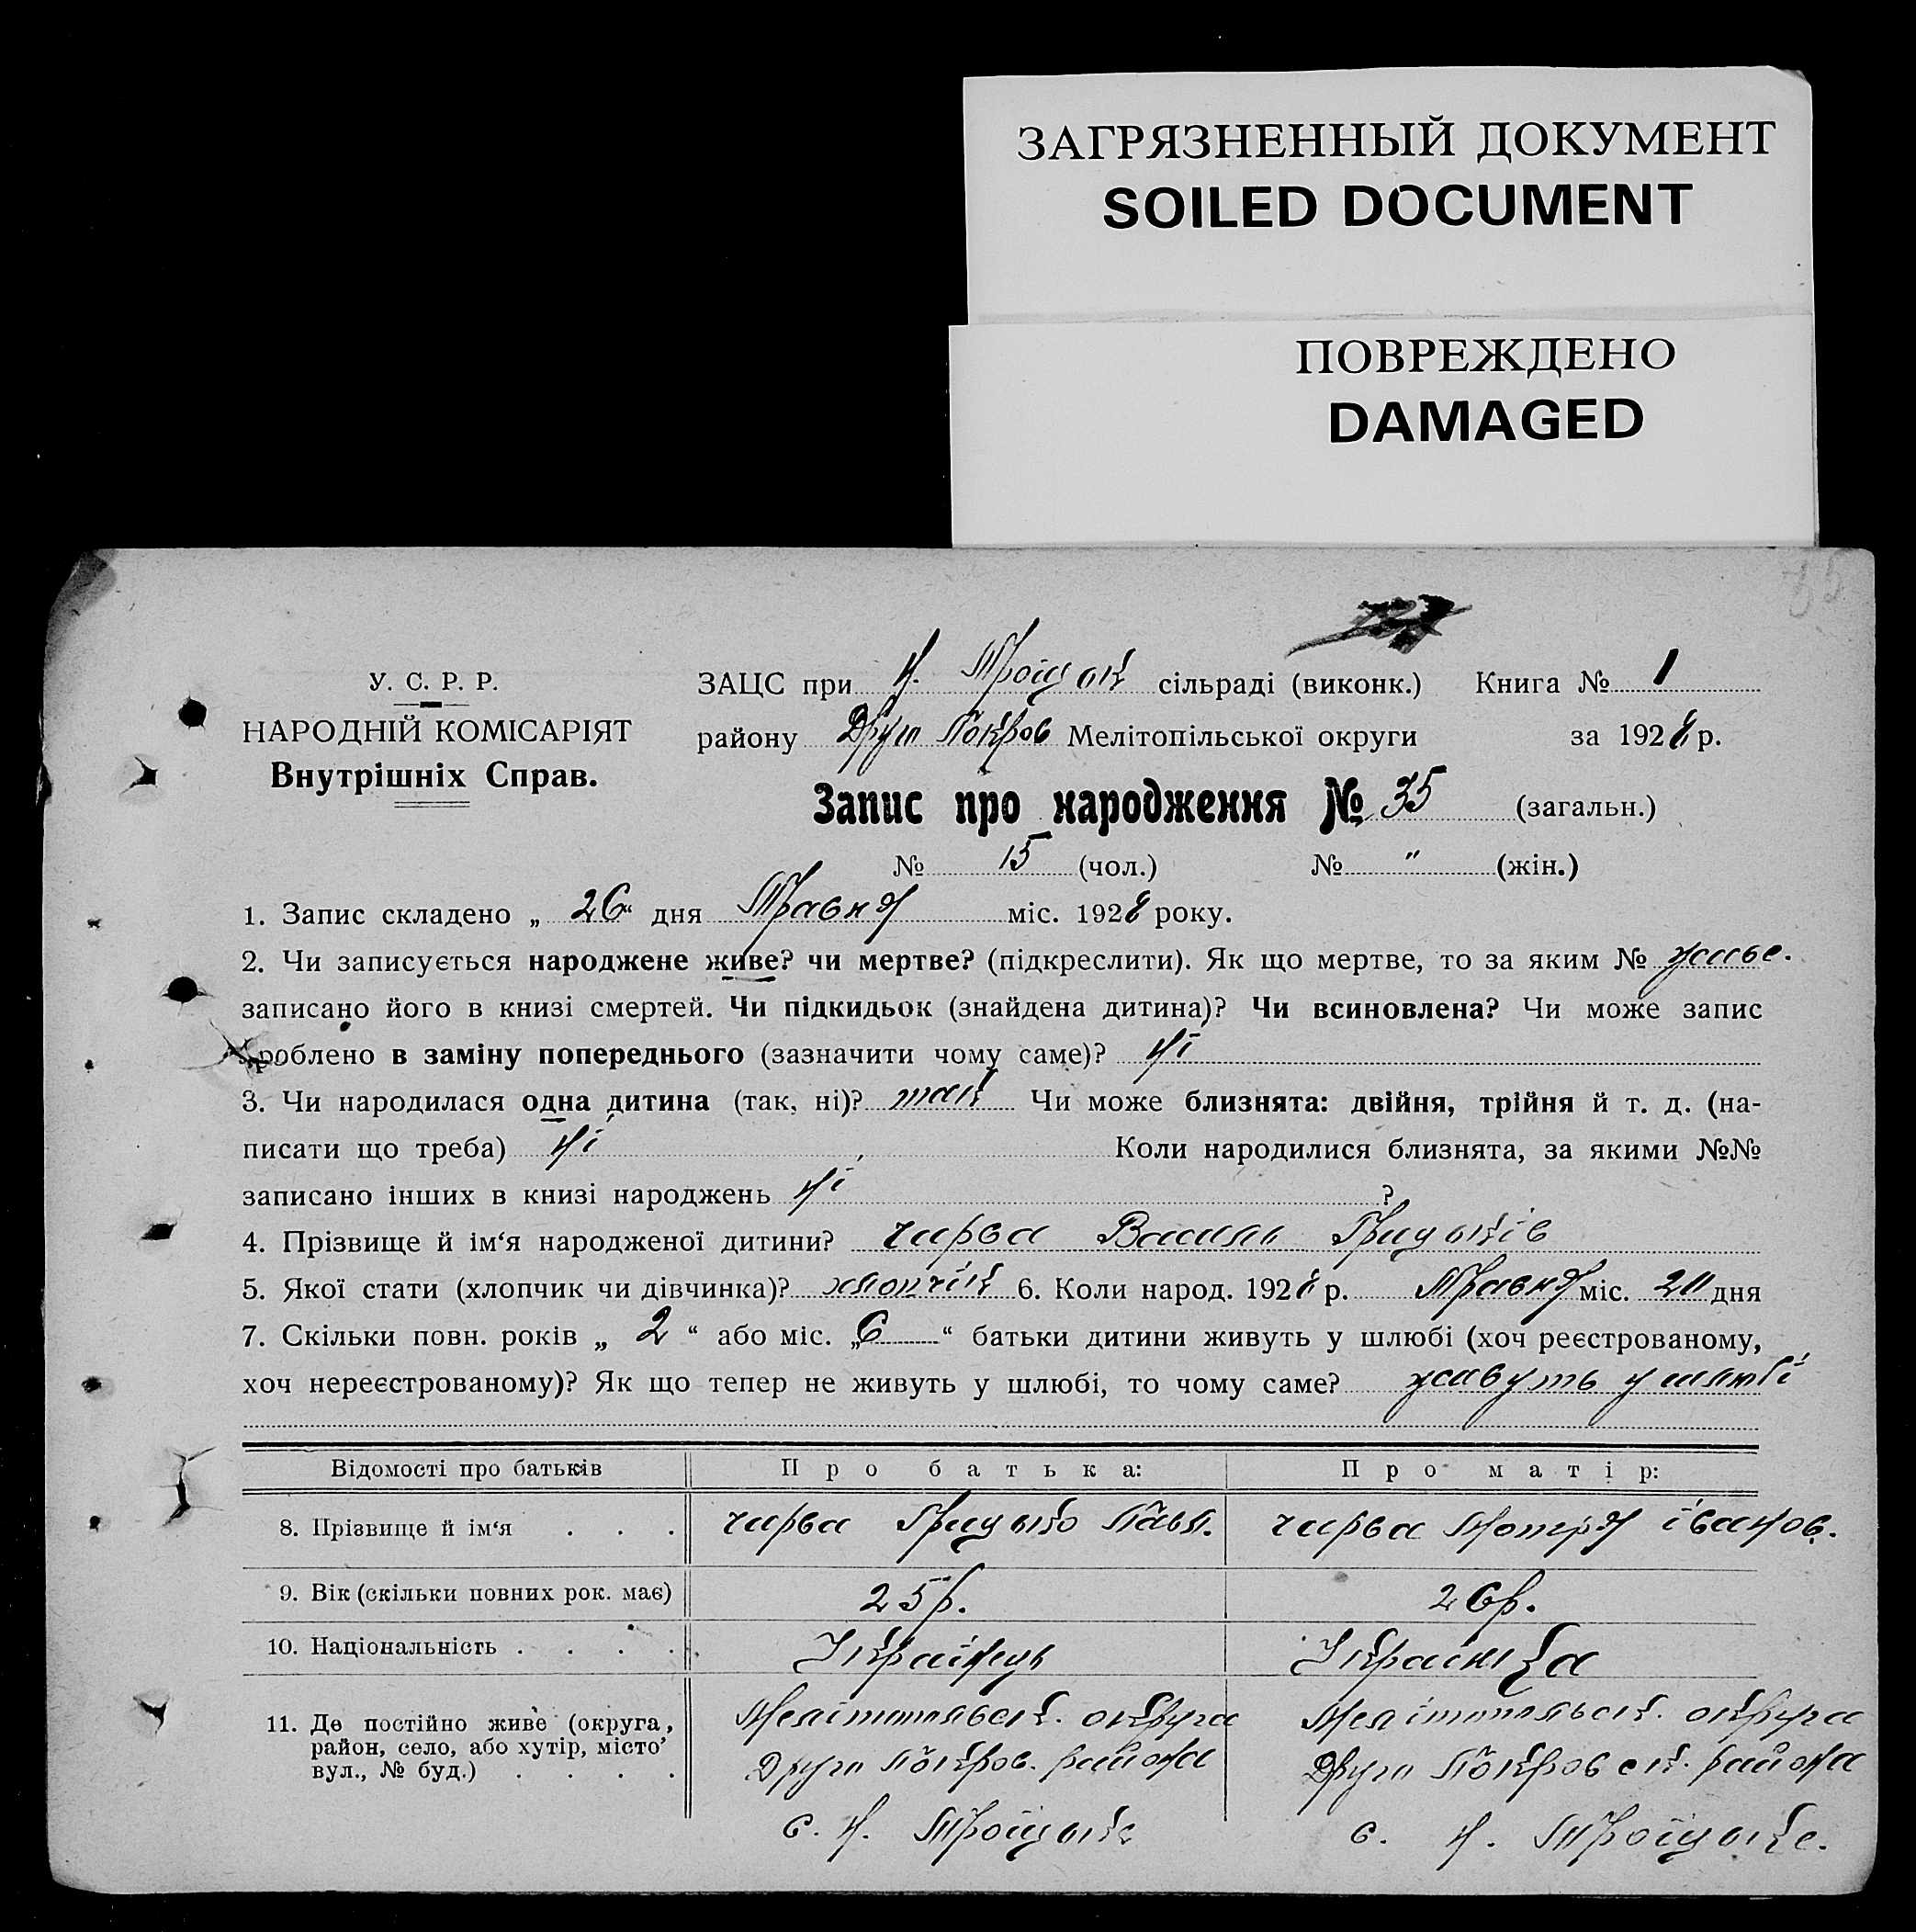 ЗАГРЯЗНЕННЫЙ ДОКУМЕНТ
SOILED DOCUMENT
ПОВРЕЖДЕНО
DAMAGED
У. С. Р. Р.
НАРОДНІЙ КОМІСАРІЯТ
Внутрішніх Справ.
ЗАЦС при Н. Троїцьк сільраді (виконк.) Книга № 1
району Друго Покров Мелітопільської округи за 1928 р.
Запис про народження № 35 (загальн.)
№ 15 (чол.) № " (жін.)
1. Запис складено „ 26 “ дня Травня міс. 1928 року.
2. Чи записується народжене живе? чи мертве? (підкреслити). Як що мертве, то за яким № живе.
записано його в книзі смертей. Чи підкидьок (знайдена дитина)? Чи всиновлена? Чи може запис
роблено в заміну попереднього (зазначити чому саме)? ні
3. Чи народилася одна дитина (так, ні)? так Чи може близнята: двійня, трійня й т. д. (на-
писати що треба) ні Коли народилися близнята, за якими №№
записано інших в книзі народжень ні ?
4. Прізвище й ім‘я народженої дитини? Чирва Василь Грицьків
5. Якої стати (хлопчик чи дівчинка)? хлопчік 6. Коли народ. 1928 р. Травня міс. дня
7. Скільки повн. років „ 2 “ або міс. „ 6 “ батьки дитини живуть у шлюбі (хоч реєстрованому,
хоч нереєстрованому)? Як що тепер не живуть у шлюбі, то чому саме? живуть у шлюбі
Відомості про батьків Про батька: Про матір:
8. Прізвище й ім‘я . . . Чирва Грицько Павл. Чирва Мотря Іванов.
9. Вік (скільки повних рок. має) 25 р. 26 р.
10. Національність . . . . Українець Українка
11. Де постійно живе (округа, район, село, або хутір, місто, вул., № буд.) . . . .
Мелітопольськ. округа
Друго Покров. района
с. Н. Троїцьке
Мелітопольськ. округа
Друго Покровск. района
с. Н. Троїцьке.